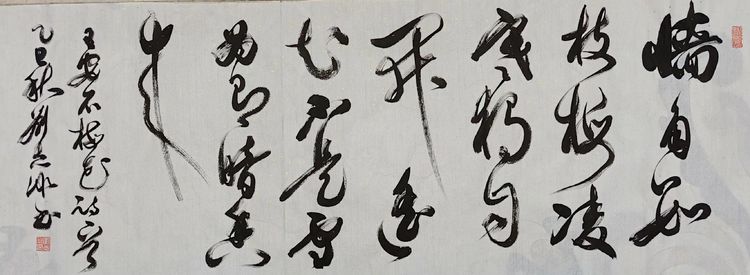 墙角数
枝梅凌
寒独自
开遥
知不是雪
为有暗香
来
王安石梅花诗
乙巳秋刘志书